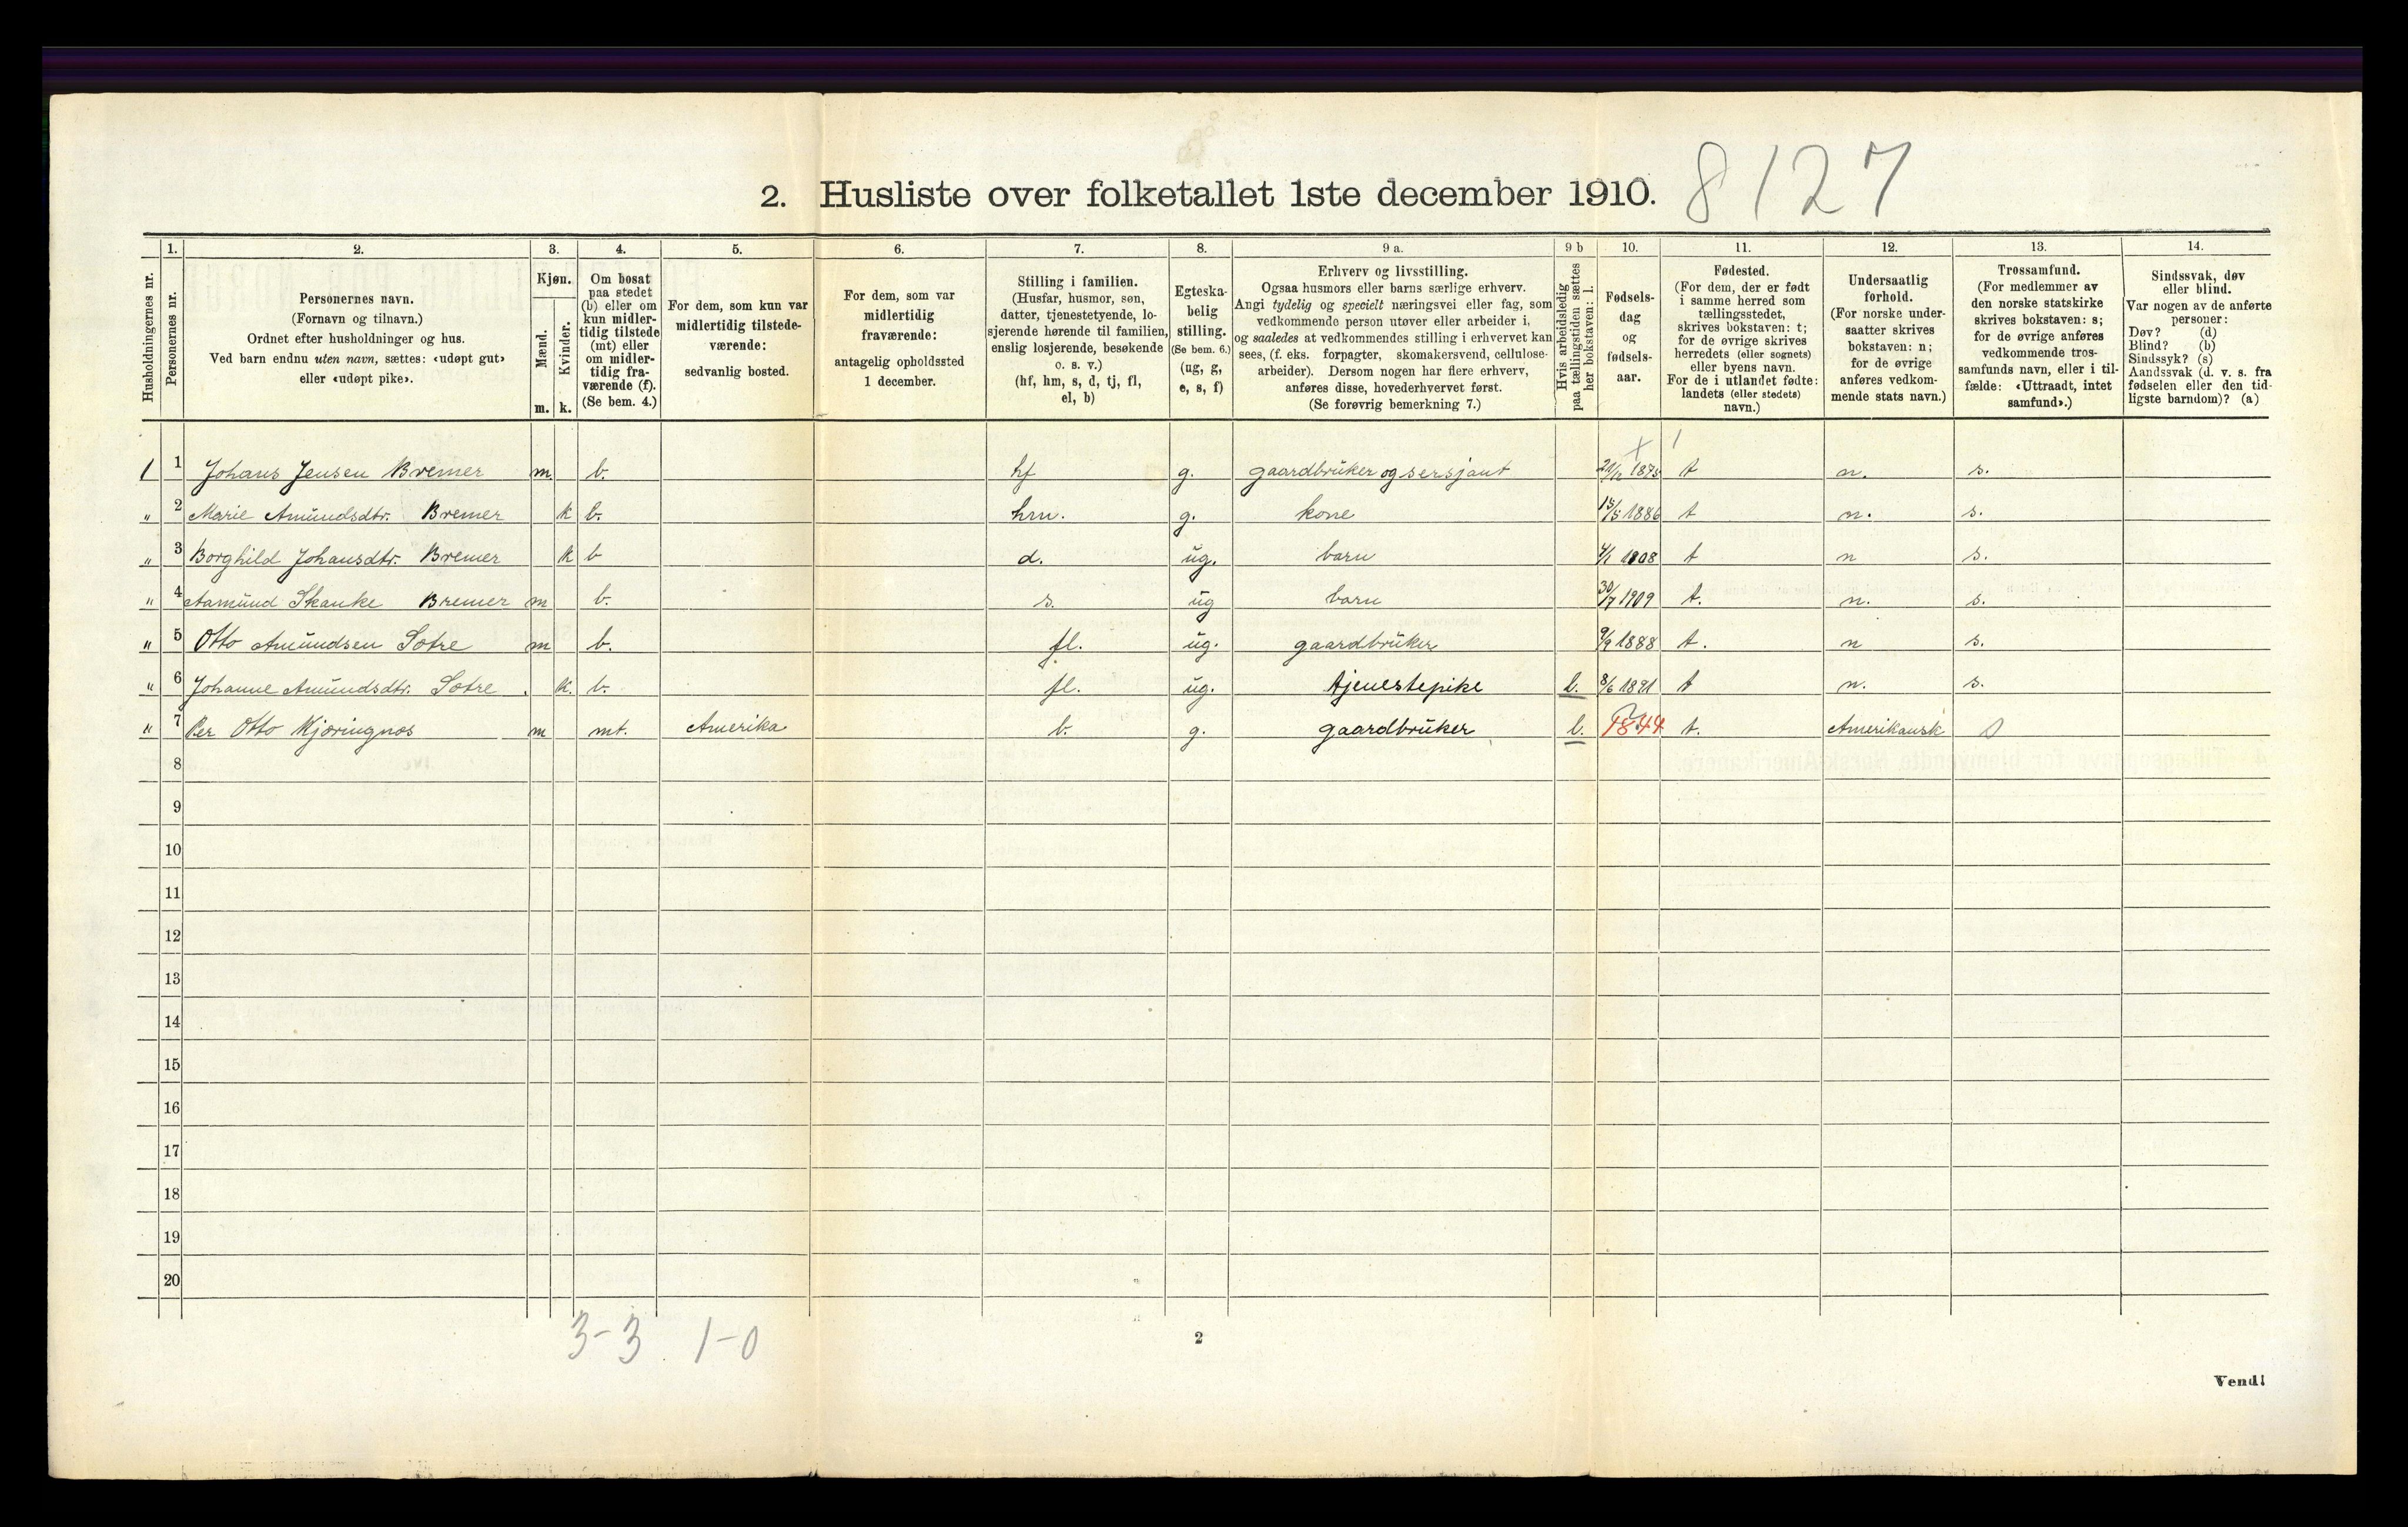 2. Husliste over folketallet 1ste december 1910. 8127
Husholdningernes nr.
1. Personernes nr.
2. Personernes navn.
(Fornavn og tilnavn.)
Ordnet efter husholdninger og hus.
Ved barn endnu uten navn, sættes: «udøpt gut»
eller «udøpt pike».
3. Kjøn.
Mænd. m.
Kvinder. k.
4. Om bosat
paa stedet
(b) eller om
kun midler-
tidig tilstede
(mt) eller
om midler-
tidig fra-
værende (f).
(Se bem. 4.)
5. For dem, som kun var
midlertidig tilstede-
værende:
sedvanlig bosted.
6. For dem, som var
midlertidig
fraværende:
antagelig opholdssted
1 december.
7. Stilling i familien.
(Husfar, husmor, søn,
datter, tjenestetyende, lo-
sjerende hørende til familien,
enslig losjerende, besøkende
o. s. v.)
(hf, hm, s, d, tj, fl,
el, b)
8. Egteska-
belig
stilling.
(Se bem. 6.)
(ug, g,
e, s, f)
9 a. Erhverv og livsstilling.
Ogsaa husmors eller barns særlige erhverv.
Angi tydelig og specielt næringsvei eller fag, som
vedkommende person utøver eller arbeider i,
og saaledes at vedkommendes stilling i erhvervet kan
sees, (f. eks. forpagter, skomakersvend, cellulose-
arbeider). Dersom nogen har flere erhverv,
anføres disse, hovederhvervet først.
(Se forøvrig bemerkning 7.)
9 b Hvis arbeidsledig
paa tællingstiden sættes
her bokstaven: l.
10. Fødsels-
dag
og
fødsels-
aar.
11. Fødested.
(For dem, der er født
i samme herred som
tællingsstedet,
skrives bokstaven: t;
for de øvrige skrives
herredets (eller sognets)
eller byens navn.
For de i utlandet fødte:
landets (eller stedets)
navn.)
12. Undersaatlig
forhold.
(For norske under-
saatter skrives
bokstaven: n;
for de øvrige
anføres vedkom-
mende stats navn.)
13. Trossamfund.
(For medlemmer av
den norske statskirke
skrives bokstaven: s;
for de øvrige anføres
vedkommende tros-
samfunds navn, eller i til-
fælde: «Uttraadt, intet
samfund».)
14. Sindssvak, døv
eller blind.
Var nogen av de anførte
personer:
Døv? (d)
Blind? (b)
Sindssyk? (s)
Aandssvak (d. v. s. fra
fødselen eller den tid-
ligste barndom)? (a)
1 1 Johans Jensen Bremer m. b. hf g. gaardbrüker og sersjant 1875 t n. s.
" 2 Marie Amündsdtr. Bremer k b. hm. g. kone 1886 t n. s.
" 3 Borghild Johansdtr. Bremer k b d. üg. barn 4/1 1908 t n s.
" 4 Aamünd Skanke Bremer m b. s. üg barn 30/7 1909 t. n. s.
" 5 Otto Amündsen Sætre m b. fl. üg. gaardbrüker 9/9 1888 t. n s.
" 6 Johanne Amündsdtr. Sætre k. b. fl. üg. tjenestepike l. 8/6 1891 t n. s.
" 7 Per Otto Kjøringnos m mt. Amerika b. g. gaardbrüker l. 1844 t. Amerikansk
8
9
10
11
12
13
14
15
16
17
18
19
20
3-3 1-0
2
Vend!